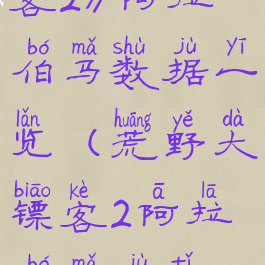 客2)/阿拉
bó mǎ shù jù yī
伯马数据一
lǎn huāng yě dà
览（荒野大
biāo kè ā lā
镖客2阿拉
bó mǎ jù